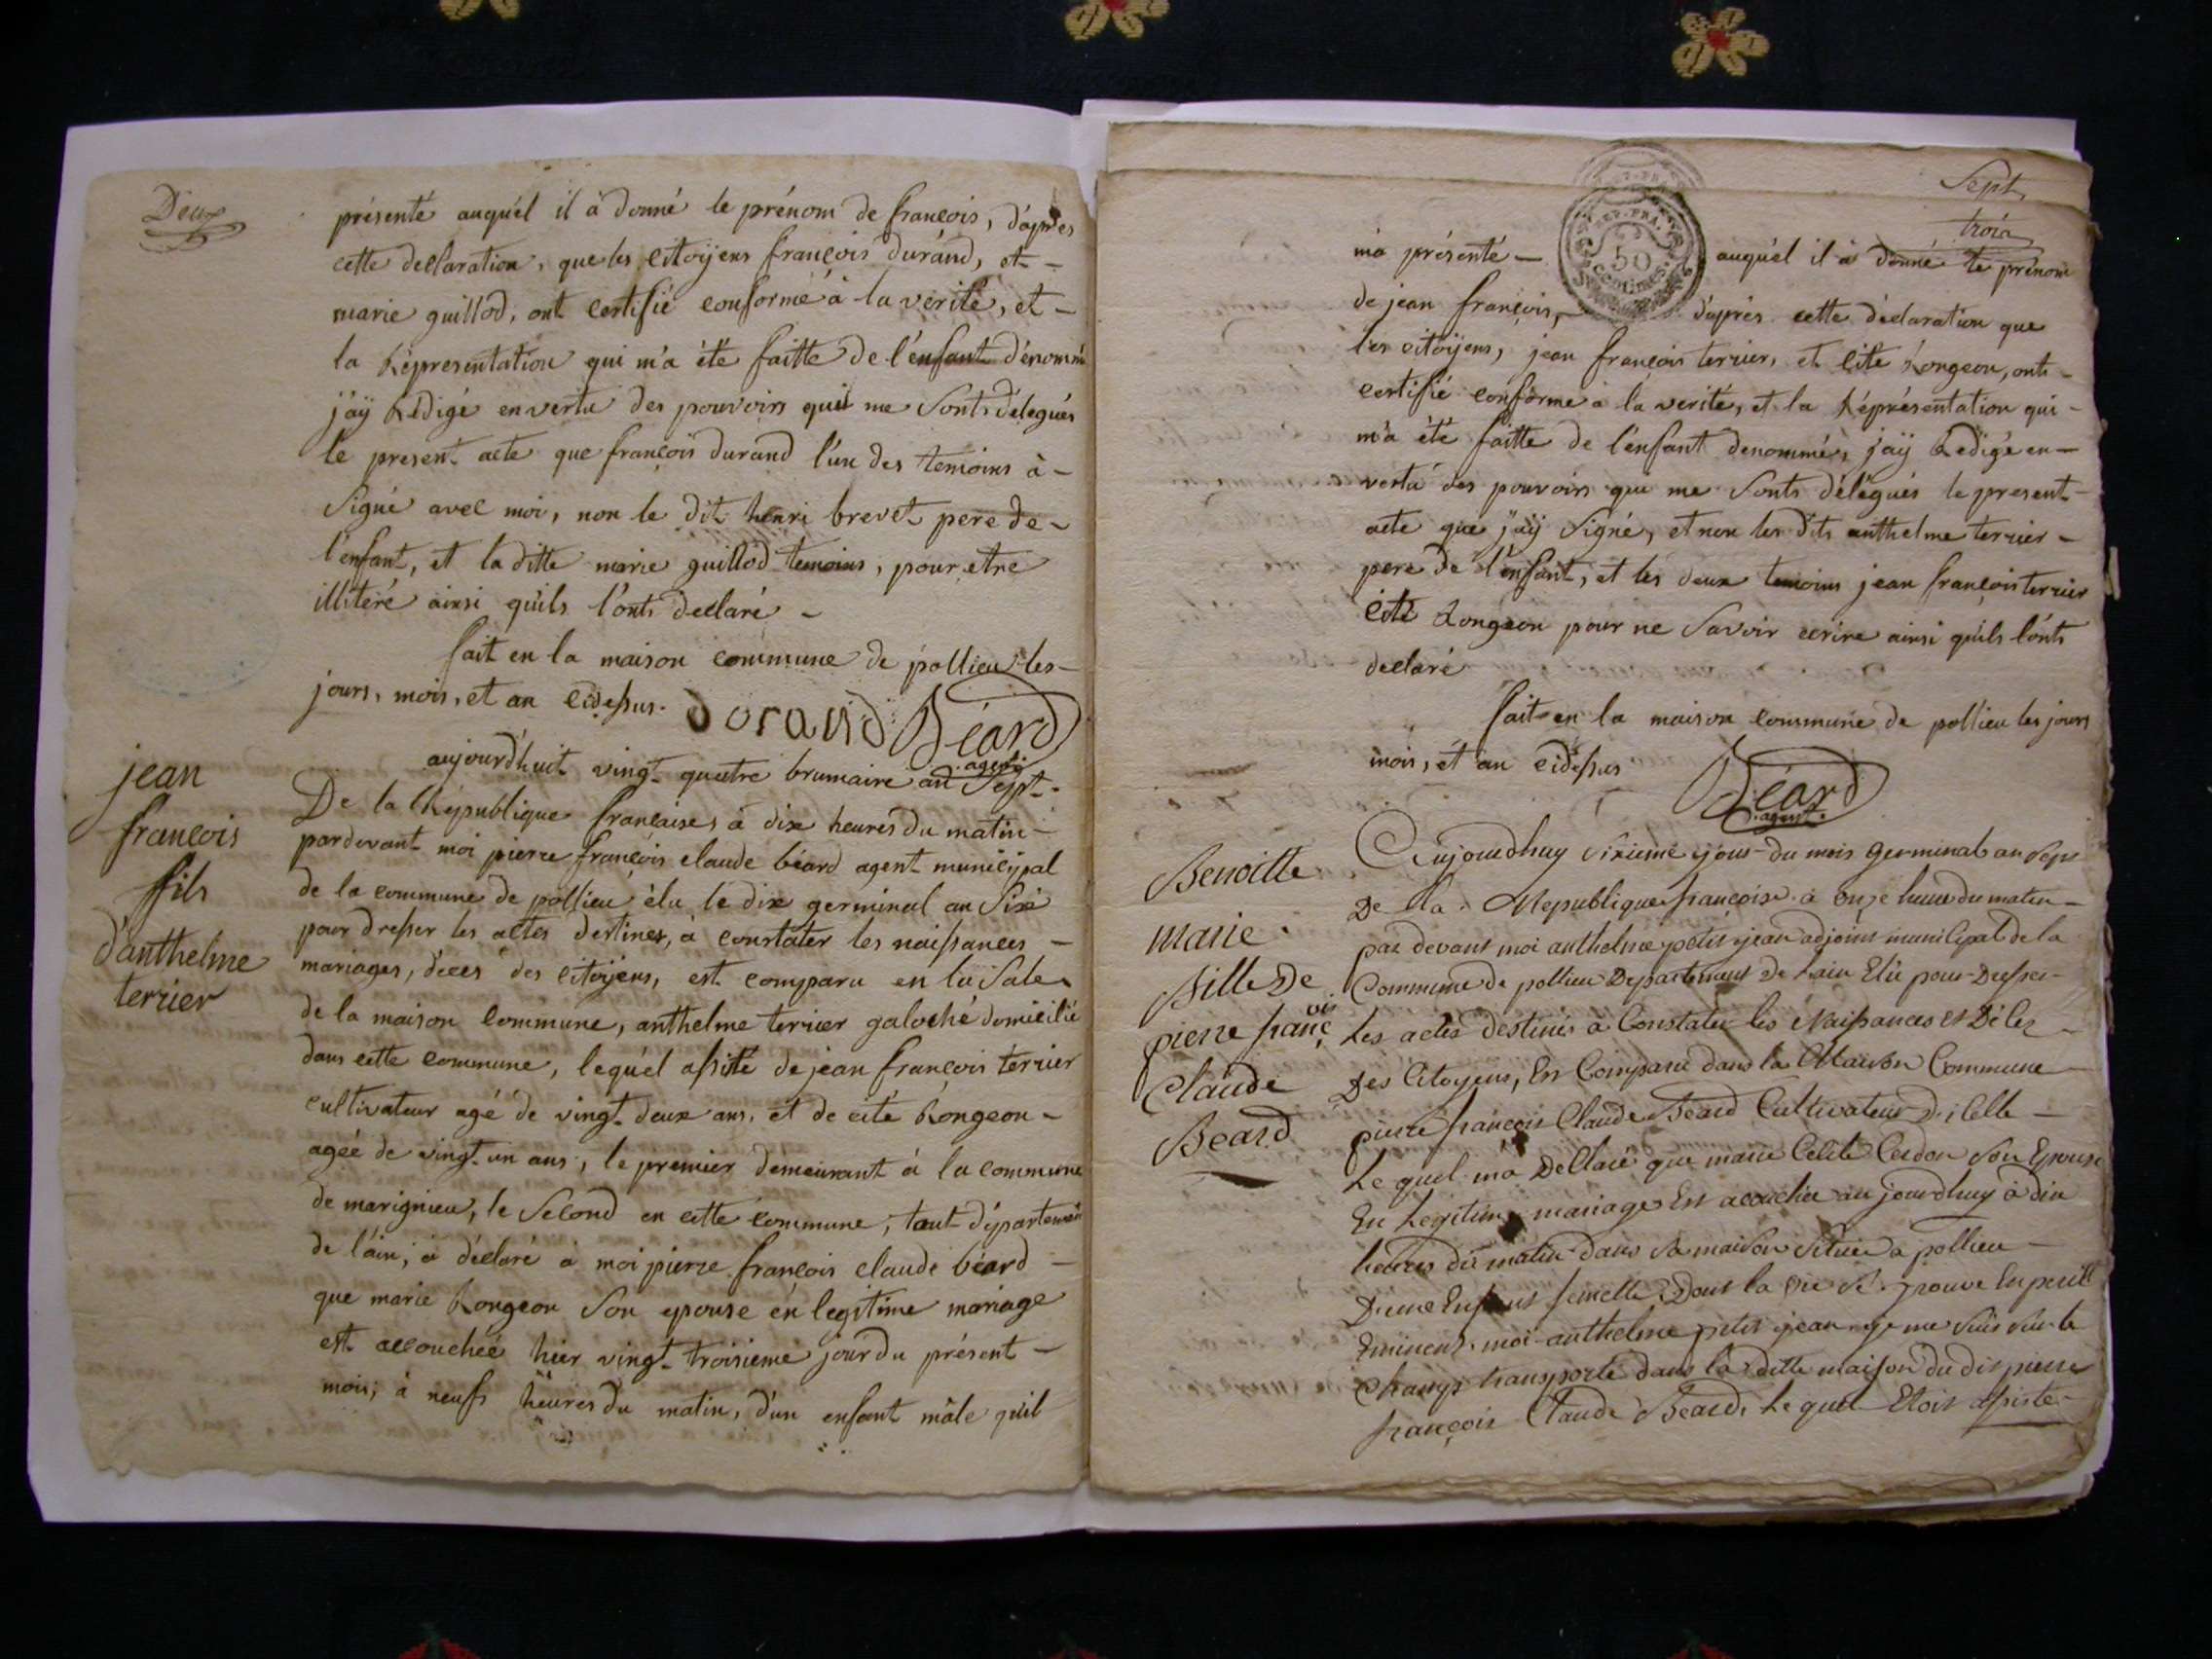 Deux
présenté auquél il à donné le prénom de françois, d'après
cette declaration, que les citoÿens françois durand, et -
marie guillod, ont certifié conforme à la verité, et -
la Réprésentation qui m'a été faitte de l'enfant dénommé
j'aÿ Rédigé en vertu des pouvoirs qui me Sonts délegués
le present acte que françois durand l'un des temoins à -
Signé avec moi, non le dit henri brevet pere de -
l'enfant, et la ditte marie guillod temoins, pour etre
illitéré ainsi qu'ils l'onts declaré -
fait en la maison commune de pollieu les -
jours, mois, et an cidessus. dorand Béard
agent
jean
françois
fils
d'anthelme
terrier
aujourd'huit vingt quatre brumaire an Sept.
De la République françaises à dix heures du matin -
pardevant moi pierre françois claude béard agent municipal
de la commune de pollieu élu le dix germinal an Six
pour dresser les actes destinés, à constater les naissances -
mariages, décés des citoÿens, est comparu en la Sale
de la maison commune, anthelme terrier galoché domicilié
dans cette commune, lequél assité de jean françois terrier
cultivateur agé de vingt deux ans, et de cité Rongeon -
agéé de vingt un ans, le premier demeurant à la commune
de marignieu, le Second en cette commune, tout département
de l'ain; à déclaré à moi pierre françois claude béard -
que marie Rongeon Son epouse en legitime mariage
est accouchéé hier vingt troisieme jour du présent -
mois, à neufs heures du matin, d'un enfant mâle qu'il
Sept
trois
REP. FRA.
50
centimes
m'a présenté - auquél il à donné le prénom
de jean françois, - d'après cette déclaration que
les citoÿens, jean françois terrier, et cité Rongeon, onts -
certifié conforme à la verité, et la Réprésentation qui -
m'a été faitte de l'enfant denommé, j'aÿ Redigé en -
vertu des pouvoirs qui me Sonts délégués le present -
acte que j'aÿ Signé, et non les dits anthelme terrier -
pere de l'enfant, et les deux temoins jean françois terrier
cité Rongeon pour ne Savoir ecrire ainsi qu'ils l'onts
declaré
fait en la maison commune de pollieu les jours
mois, et an cidessus
Béard
agent.
Benoitte
marie
fille De
pierre françois
Claude
Beard
Aujourdhuy Sixieme jour du mois Germinal an Sept
De la Republique françoise à onze heure du matin -
par devant moi anthelme petit jean adjoint municipal de la
Commune de pollieu Departement de Lain Elü pour Dresser -
Les actes destinés à Constater les Naissances et Déces -
Des Citoyens, Est Comparu dans la Maison Commune -
pierre françois Claude Beard Cultivateur Dicelle -
Le quel ma Dellaré que marie Celite Cerdon Son Epouse
En Legitime mariage Est acouchée au jourdhuy à dix
heures du matin dans Sa maison Située a pollieu -
Dune Enfant femelle, Dont la vie Se trouve En peril
Eminent. moi anthelme petit jean je me Suis Sur le
Champ transporté dans la ditte maison du dit pierre
françois Claude Beard, Le quel Etoit assisté -